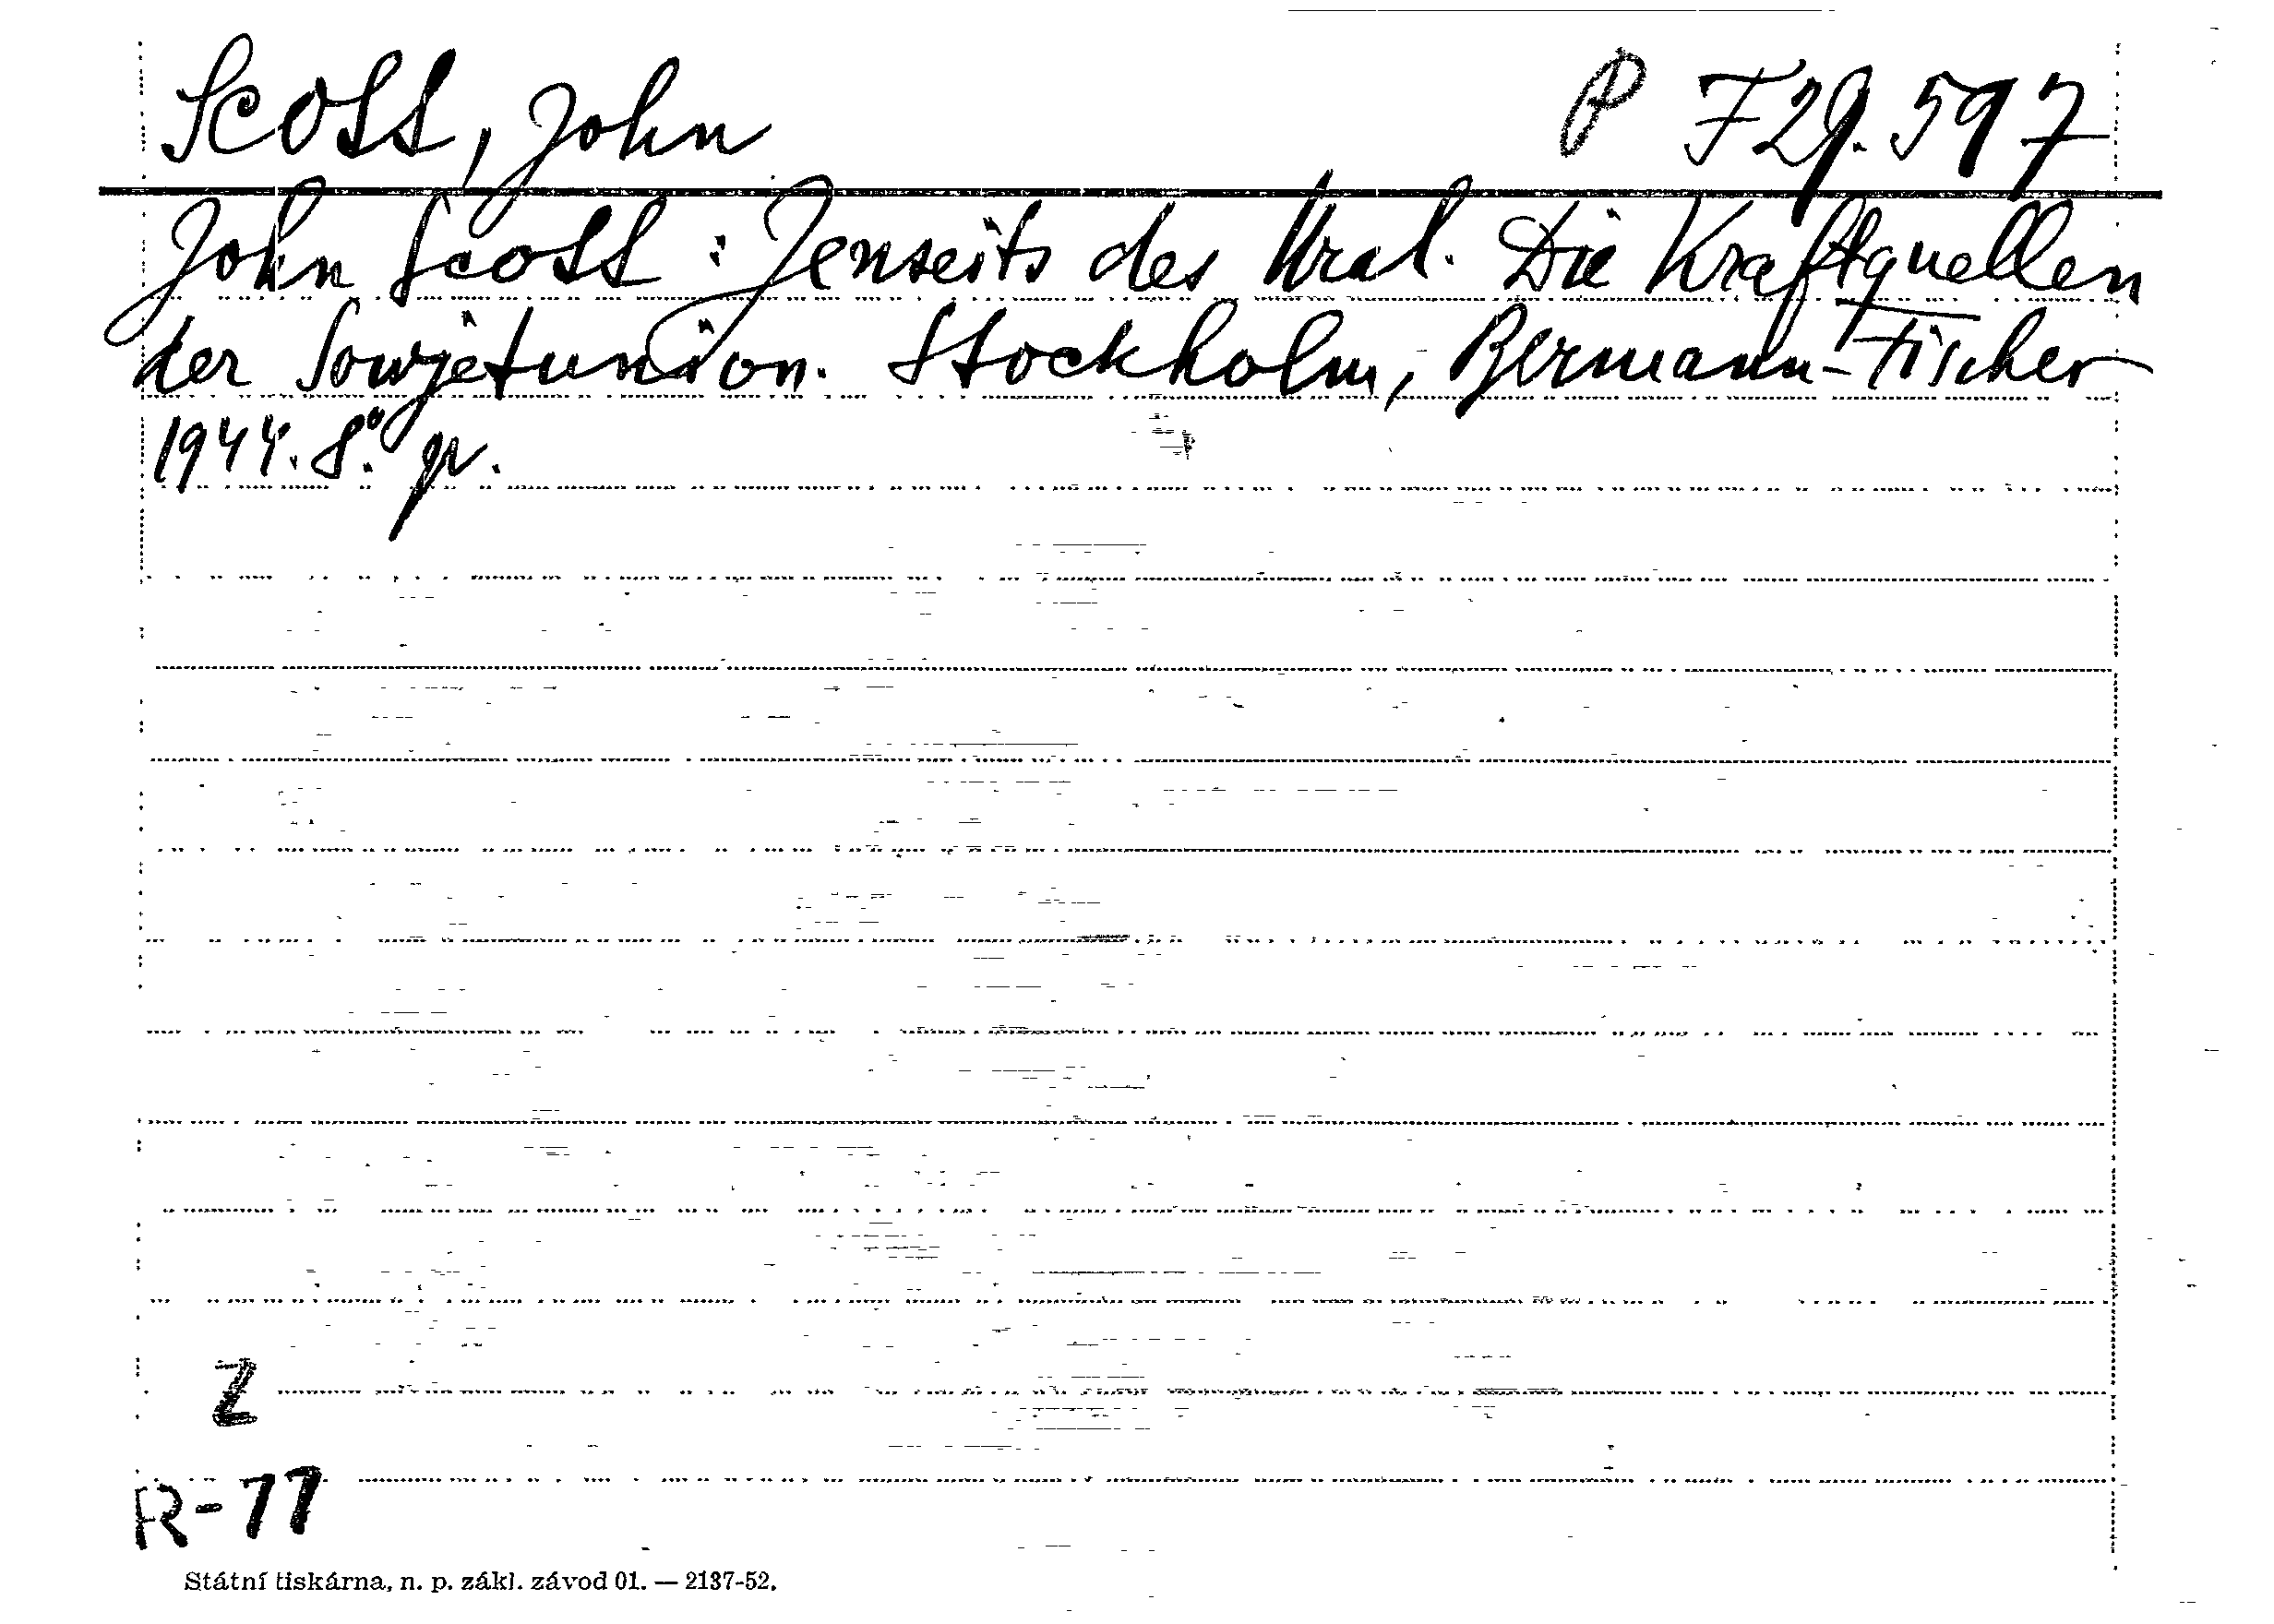 Scott, John P F 29.597
John Scott: Jenseits des Ural. Die Kraftquellen
der Sowjetunion. Stockholm, Bermann-Fischer
1944. 8°. pv.
Z
R-77
Státní tiskárna, n. p. zákl. závod 01. — 2137-52.